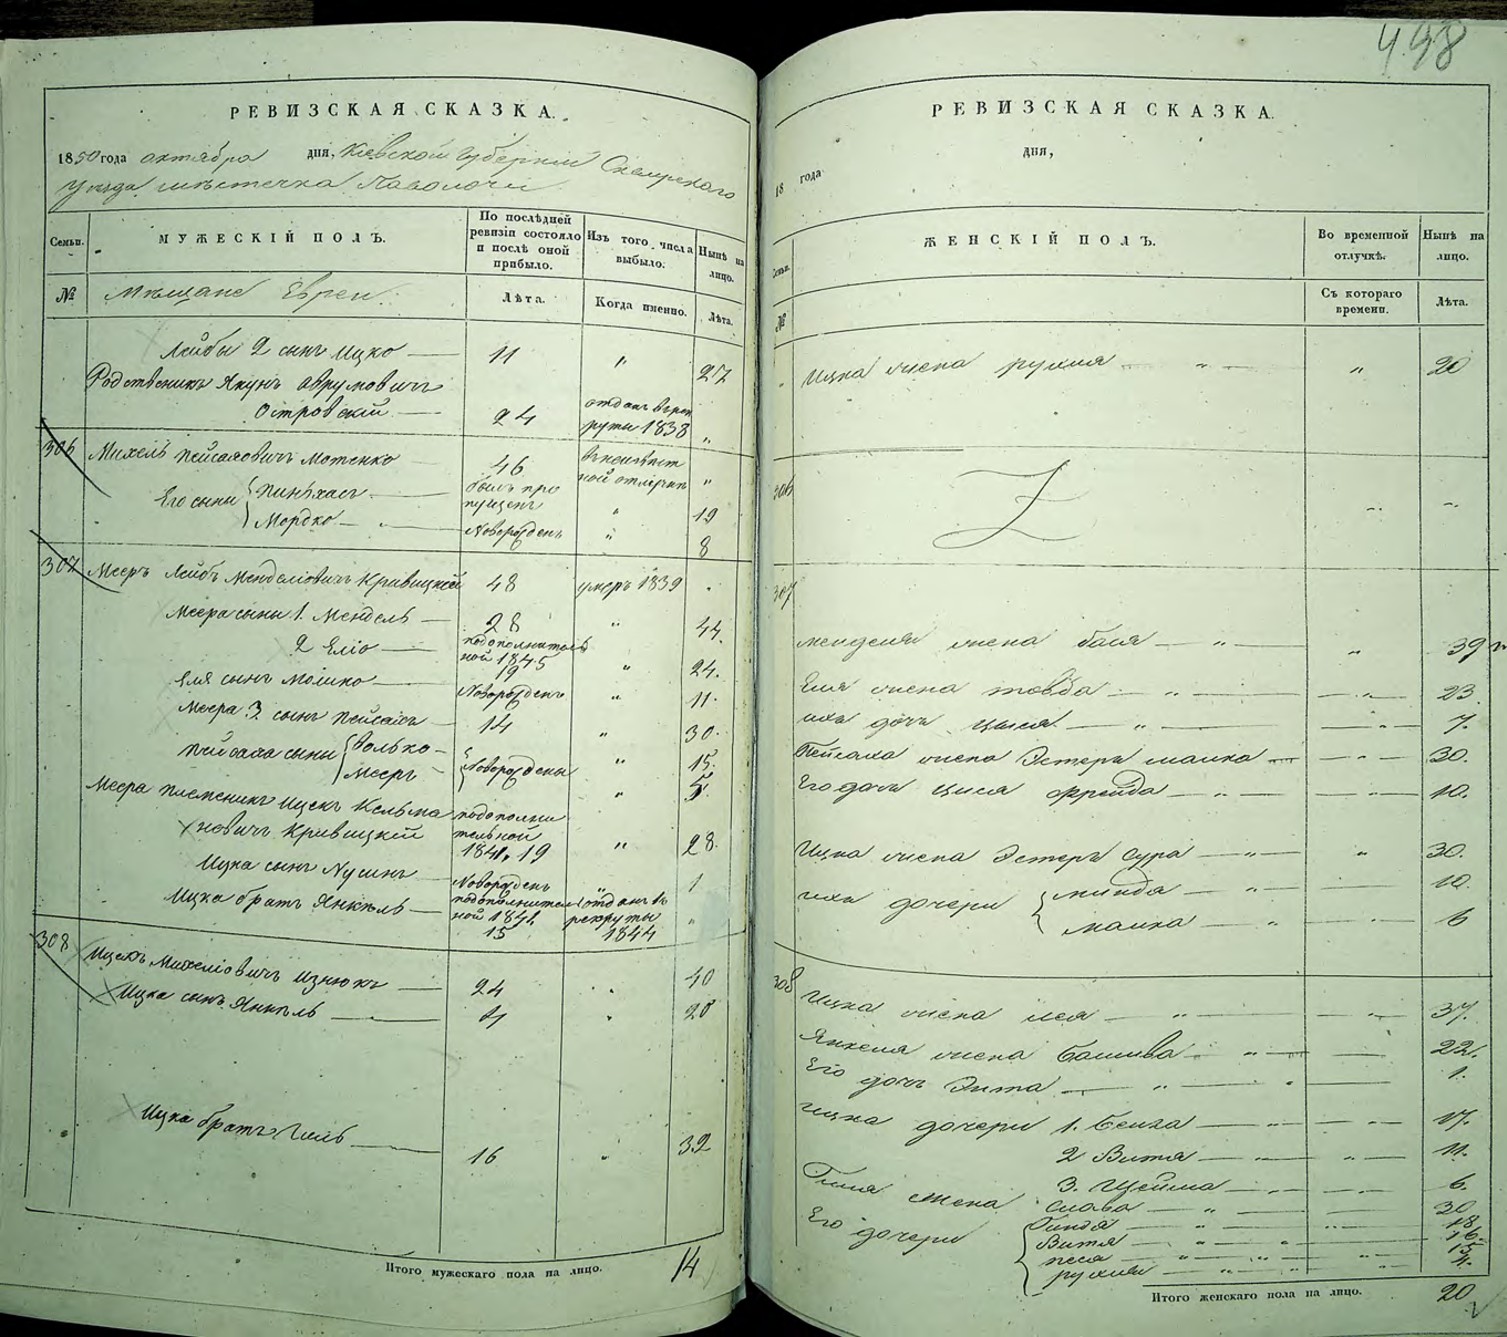 498
РЕВИЗСКАЯ СКАЗКА.
1850 года октября дня, Кіевской Губерніи Сквирскаго
Уезда местечка Паволочи
Семьи.
МУЖЕСКІЙ ПОЛЪ.
По послѣдней ревизіи состояло и послѣ оной прибыло.
Изъ того числа выбыло.
Нынѣ на лицо.
№
Мещане Евреи.
Лѣта.
Когда именно.
Лѣта.
Лейбы 2 сынъ Ицко — 11 " 27
Родственикъ Якунъ Аврумовичъ
Островскій — 24 отданъ въ рекруты 1838 "
306 Михель Пейсаховичъ Мотенко 46 въ неизвестной отлучке "
Его сыны Пинхасъ — былъ пропущенъ " 19
Мордко — Новорожденъ " 8
307 Мееръ Лейбъ Менделіовичъ Кривицкій 48 умеръ 1839
Меера сыны 1. Мендель — 28 " 44.
2 Еліо — по дополнительной 1845 19 " 24.
Еля сынъ Мошко — Новорожденъ " 11.
Меера 3 сынъ Пейсахъ — 14 " 30.
Пейсаха сыны Волько — Новорождены " 15.
Мееръ — " 5.
Меера племеникъ Ицекъ Кельмановичъ Кривицкій по дополнительной 1841, 19 " 28.
Ицка сынъ Нусинъ — Новорожденъ " 1
Ицка братъ Янкель — по дополнительной 1841 15 отданъ въ рекруты 1844 "
308 Ицекъ Михеліовичъ Изнюкъ — 24 " 40
Ицка сынъ Янкель — 4 " 20
Ицка братъ Гиль — 16 " 32
Итого мужескаго пола на лицо. 14
РЕВИЗСКАЯ СКАЗКА.
18 года дня,
Семьи.
ЖЕНСКІЙ ПОЛЪ.
Во временной отлучкѣ.
Нынѣ на лицо.
№
Съ котораго времени.
Лѣта.
Ицка жена Рухля " " 20
306
307
Менделя жена Бася — " — " 39
Еля жена Товба — " — " 23
ихъ дочь Цыся — " — " 7.
Пейсаха жена Эстеръ Малка — " 30.
Его дочь Цися Фрейда — " — " 10.
Ицка жена Эстеръ Сура — " — " 30.
ихъ дочери Минда — " — " 10.
Малка — " — " 6
308 Ицка жена Лея — " — " 37.
Янкеля жена Башива — " — 22.
Его дочь Энта — " — " 1.
Ицка дочери 1. Бейла — " — " 17.
2 Витя — " — " 11.
3. Шейма — " — " 6.
Гиля жена Слава — " — 30
Его дочери Гиндя — " — " 18
Витя — " — " 16.
Песя — " — " 13
Рухля — " — " 4.
Итого женскаго пола на лицо. 20